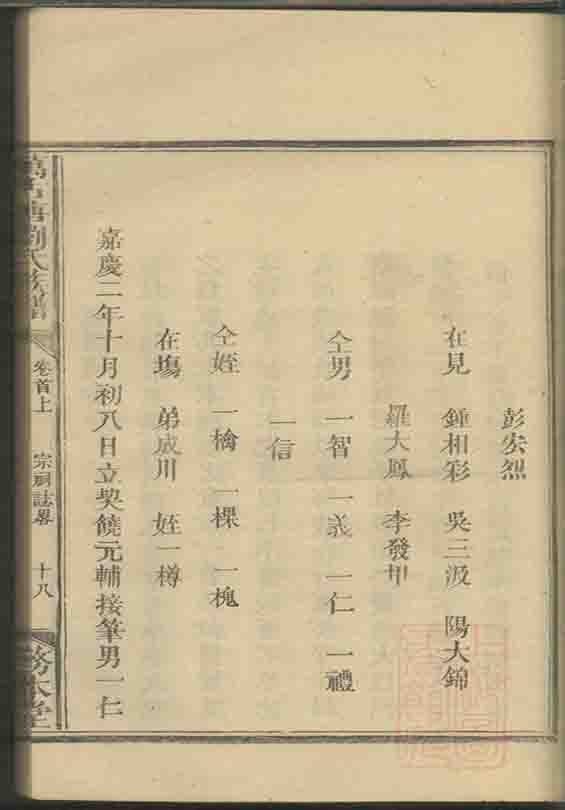 彭宏烈
在見 鍾相彩 吳三汲 陽大錦
羅大鳳 李發甲
仝男 一智 一義 一仁 一禮
一信
仝姪 一檎 一棵 一槐
在塲 弟成川 姪一樽
嘉慶二年十月初八日立契饒元輔接筆男一仁
劉氏族譜
卷首上 宗祠誌畧 十八
務本堂